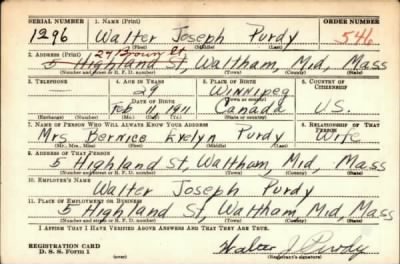 SERIAL NUMBER 1. NAME (Print) ORDER NUMBER
1296 Walter Joseph Purdy 546
(First) (Middle) (Last)
2. ADDRESS (Print) 27 St
5 Highland St, Waltham, Mid, Mass
(Number and street or R. F. D. number) (Town) (County) (State)
3. TELEPHONE 4. AGE IN YEARS 5. PLACE OF BIRTH 6. COUNTRY OF CITIZENSHIP
— 29 Winnipeg
DATE OF BIRTH (Town or county)
Feb 11 1911 Canada U.S.
(Exchange) (Number) (Mo.) (Day) (Yr.) (State or country)
7. NAME OF PERSON WHO WILL ALWAYS KNOW YOUR ADDRESS 8. RELATIONSHIP OF THAT PERSON
Mrs Bernice Evelyn Purdy Wife
(Mr., Mrs., Miss) (First) (Middle) (Last)
9. ADDRESS OF THAT PERSON
5 Highland St, Waltham, Mid, Mass
(Number and street or R. F. D. number) (Town) (County) (State)
10. EMPLOYER'S NAME
Walter Joseph Purdy
11. PLACE OF EMPLOYMENT OR BUSINESS
5 Highland St, Waltham, Mid, Mass
(Number and street or R. F. D. number) (Town) (County) (State)
I AFFIRM THAT I HAVE VERIFIED ABOVE ANSWERS AND THAT THEY ARE TRUE.
REGISTRATION CARD
D. S. S. Form 1 Walter J Purdy
(Registrant's signature)